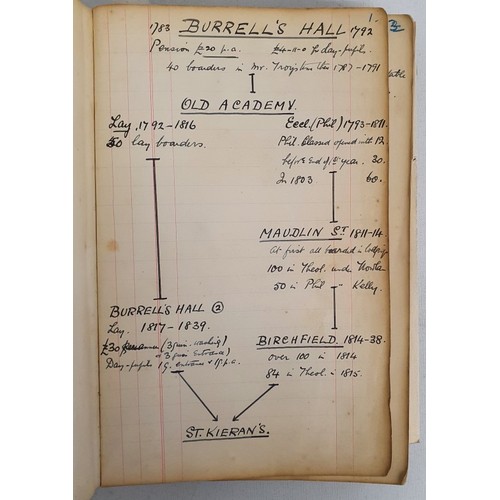 1.
1783 BURRELL'S HALL 1792
Pension £20 p.a. £4-11-0 for day-pupils.
40 boarders in Mr. time 1787-1791
OLD ACADEMY.
Lay, 1792-1816
50 lay boarders.
Eccl. (Phil) 1793-1811.
Phil. Classes opened with 12
before End of 1st year. 30.
In 1803 60.
MAUDLIN ST. 1811-14.
At first all boarded in
100 in Theol. under
50 in Phil " Kelly.
BURRELL'S HALL ②
Lay. 1817-1839.
£30 (3 guin. washing)
+ 3 guin Entrance)
Day-pupils 1 g. entrance + p.a.
BIRCHFIELD. 1814-38.
over 100 in 1814
84 in Theol. in 1815.
ST. KIERAN'S.